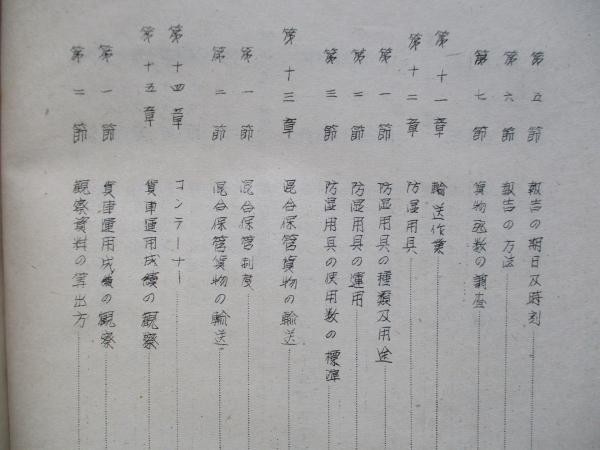 第五節 報告の期日及時刻
第六節 報告の方法
第七節 貨物函数の調査
第十一章 輸送作業
第十二章 防湿用具
第一節 防湿用具の種類及用途
第二節 防湿用具の運用
第三節 防湿用具の使用数の標準
第十三章 混合保管貨物の輸送
第一節 混合保管制度
第二節 混合保管貨物の輸送
第十四章 コンテーナー
第十五章 貨車運用成績の観察
第一節 貨車運用成績の観察
第二節 観察資料の算出方